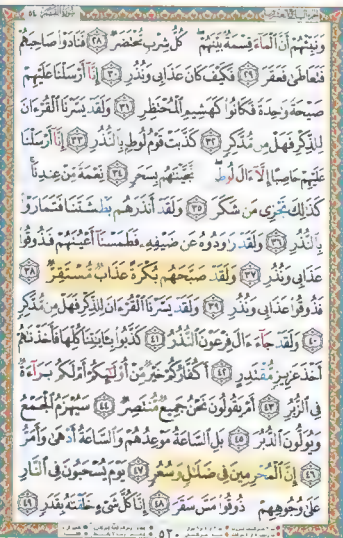 وَنَبِّئْهُمْ أَنَّ ٱلْمَآءَ قِسْمَةٌۢ بَيْنَهُمْ كُلُّ شِرْبٍ مُّحْتَضَرٌ ٢٨ فَنَادَوْا۟ صَاحِبَهُمْ
فَتَعَاطَىٰ فَعَقَرَ ٢٩ فَكَيْفَ كَانَ عَذَابِى وَنُذُرِ ٣٠ إِنَّآ أَرْسَلْنَا عَلَيْهِمْ
صَيْحَةً وَٰحِدَةً فَكَانُوا۟ كَهَشِيمِ ٱلْمُحْتَظِرِ ٣١ وَلَقَدْ يَسَّرْنَا ٱلْقُرْءَانَ
لِلذِّكْرِ فَهَلْ مِن مُّدَّكِرٍ ٣٢ كَذَّبَتْ قَوْمُ لُوطٍۭ بِٱلنُّذُرِ ٣٣ إِنَّآ أَرْسَلْنَا
عَلَيْهِمْ حَاصِبًا إِلَّآ ءَالَ لُوطٍ نَّجَّيْنَٰهُم بِسَحَرٍ ٣٤ نِّعْمَةً مِّنْ عِندِنَا
كَذَٰلِكَ نَجْزِى مَن شَكَرَ ٣٥ وَلَقَدْ أَنذَرَهُم بَطْشَتَنَا فَتَمَارَوْا۟
بِٱلنُّذُرِ ٣٦ وَلَقَدْ رَٰوَدُوهُ عَن ضَيْفِهِۦ فَطَمَسْنَآ أَعْيُنَهُمْ فَذُوقُوا۟
عَذَابِى وَنُذُرِ ٣٧ وَلَقَدْ صَبَّحَهُم بُكْرَةً عَذَابٌ مُّسْتَقِرٌّ ٣٨
فَذُوقُوا۟ عَذَابِى وَنُذُرِ ٣٩ وَلَقَدْ يَسَّرْنَا ٱلْقُرْءَانَ لِلذِّكْرِ فَهَلْ مِن مُّدَّكِرٍ
٤٠ وَلَقَدْ جَآءَ ءَالَ فِرْعَوْنَ ٱلنُّذُرُ ٤١ كَذَّبُوا۟ بِـَٔايَٰتِنَا كُلِّهَا فَأَخَذْنَٰهُمْ
أَخْذَ عَزِيزٍ مُّقْتَدِرٍ ٤٢ أَكُفَّارُكُمْ خَيْرٌ مِّنْ أُو۟لَٰٓئِكُمْ أَمْ لَكُم بَرَآءَةٌ
فِى ٱلزُّبُرِ ٤٣ أَمْ يَقُولُونَ نَحْنُ جَمِيعٌ مُّنتَصِرٌ ٤٤ سَيُهْزَمُ ٱلْجَمْعُ
وَيُوَلُّونَ ٱلدُّبُرَ ٤٥ بَلِ ٱلسَّاعَةُ مَوْعِدُهُمْ وَٱلسَّاعَةُ أَدْهَىٰ وَأَمَرُّ
٤٦ إِنَّ ٱلْمُجْرِمِينَ فِى ضَلَٰلٍ وَسُعُرٍ ٤٧ يَوْمَ يُسْحَبُونَ فِى ٱلنَّارِ
عَلَىٰ وُجُوهِهِمْ ذُوقُوا۟ مَسَّ سَقَرَ ٤٨ إِنَّا كُلَّ شَىْءٍ خَلَقْنَٰهُ بِقَدَرٍ ٤٩
٥٣٠